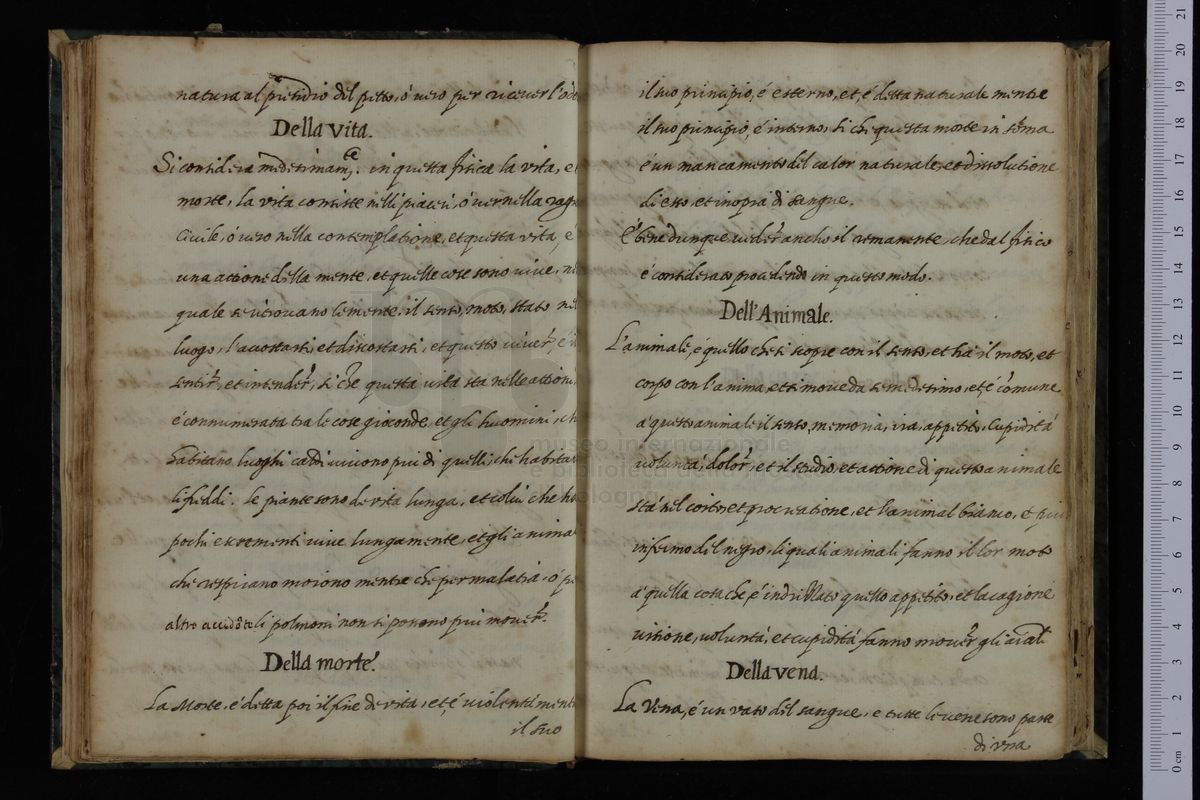 natura al presidio del petto, ó vero per ricever l'
Della vita.
Si considera medesimam.te in questa fisica la vita, e
morte, la vita consiste nelli piaceri, ó ver nella
Civile, ó vero nella contemplatione, et questa vita, é
una attione della mente, et quelle cose sono vive,
quale se ritrovano le mente, il senso, moto, stato
luogo, l'accostarsi, et discostarsi, et questo viver, é
sentir, et intender, si che questa vita sta nelle attioni
é connumerata tra le cose gioconde, et gli huomini, ch
habitano luoghi caldi vivono piu di quelli, che habita
li freddi. le piante sono de vita lunga, et colui che ha
pochi excrementi vive lungamente, et gli anima
che respirano morono mentre che per malatia, ó p
altro accidẽte li polmoni non si possono piu mover.
Della morte.
La Morte, é detta poi il fine de vita, et é violenti mentre
il suo
il suo principio, é esterno, et, é detta naturale mentre
il suo principio, é interno, si che questa morte in sõma
é un mancamento del calor naturale, et dissolutione
di esso, et inopia di sangue.
É bene dunque veder ancho il remanente, che dal fisico
é considerato procedendo in questo modo.
Dell'Animale.
L'animale, é quello che si scopre con il senso, et há il moto, et
corpo con l'anima, et si move da se medesimo, et, é comune
a questo animale il senso, memoria, ira, appetito, Cupiditá
voluntá, dolor, et il studio, et attione di questo animale
stá nel coito, et procreatione, et l'animal bianco, é piu
infermo del negro, li quali animali fanno il lor moto
a quella cosa che, é indrizzato quello appetito, et la cagione
visione, voluntá, et cupiditá fanno mover gli aīali
Della vena.
La Vena, é un vaso del sangue, e tutte le vene sono parte
di vna
museo internazionale
biblioteca
bologna